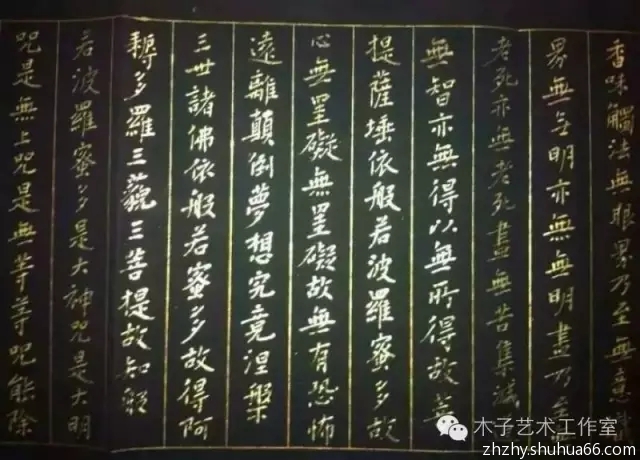 香味觸法無眼界乃至無意識
界無无明亦無無明盡乃至無
老死亦無老死盡無苦集滅
無智亦無得以無所得故菩
提薩埵依般若波羅蜜多故
心無罣礙無罣礙故無有恐怖
遠離顛倒夢想究竟涅槃
三世諸佛依般若蜜多故得阿
耨多羅三藐三菩提故知般
若波羅蜜多是大神咒是大明
咒是無上咒是無等等咒能除
木子艺术工作室
zhzhy.shuhua66.com